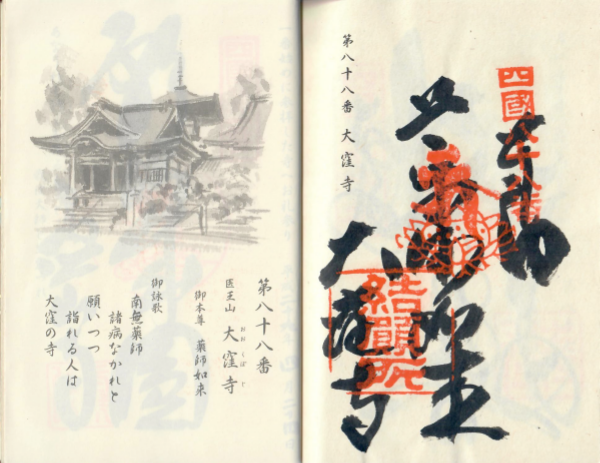 四國八十八番
奉納
大窪寺
結願所
第八十八番 大窪寺
第八十八番
医王山 大窪寺
おおくぼじ
御本尊 薬師如来
御詠歌
南無薬師
諸病なかれと
願いつつ
詣れる人は
大窪の寺